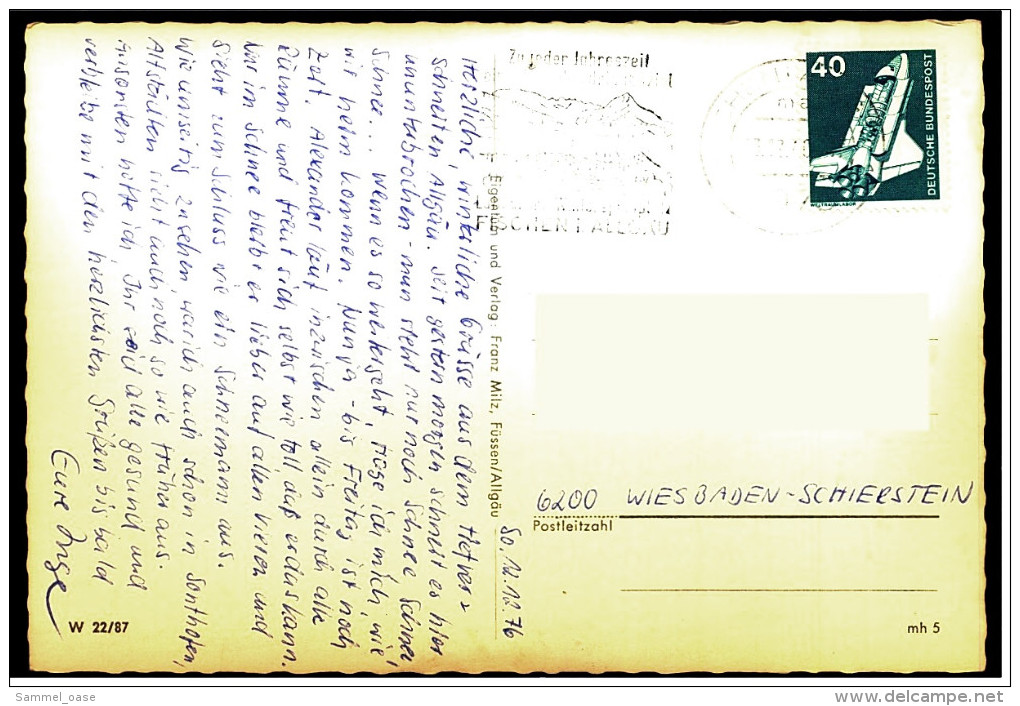 So. 12.12.76
Herzliche, winterliche Grüsse aus dem tiefver=
schneiten Allgäu. Seit gestern morgen schneit es hier
ununterbrochen - man sieht nur noch Schnee Schnee
Schnee... Wenn es so weitergeht, frage ich mich, wie
wir heim kommen. Nun ja - bis Freitag ist noch
Zeit. Alexander läuft inzwischen allein durch alle
Räume und freut sich selbst wie toll daß er das kann.
Nur im Schnee bleibt er lieber auf allen Vieren und
sieht zum Schluss wie ein Schneemann aus.
Wie unseitig zu sehen, war ich auch schon in Sonthofen,
Altstädten sieht auch noch so wie früher aus.
Ansonsten hoffe ich, Ihr seid alle gesund und
verbleibe mit den herzlichsten Grüßen bis bald
Eure Inge
W 22/87
Eigentum und Verlag: Franz Milz, Füssen/Allgäu
Zu jeder Jahreszeit
FISCHEN I. ALLGÄU
40
DEUTSCHE BUNDESPOST
WELTRAUMLABOR
6200 WIESBADEN-SCHIERSTEIN
Postleitzahl
mh 5
Sammel_oase
www.delcampe.net